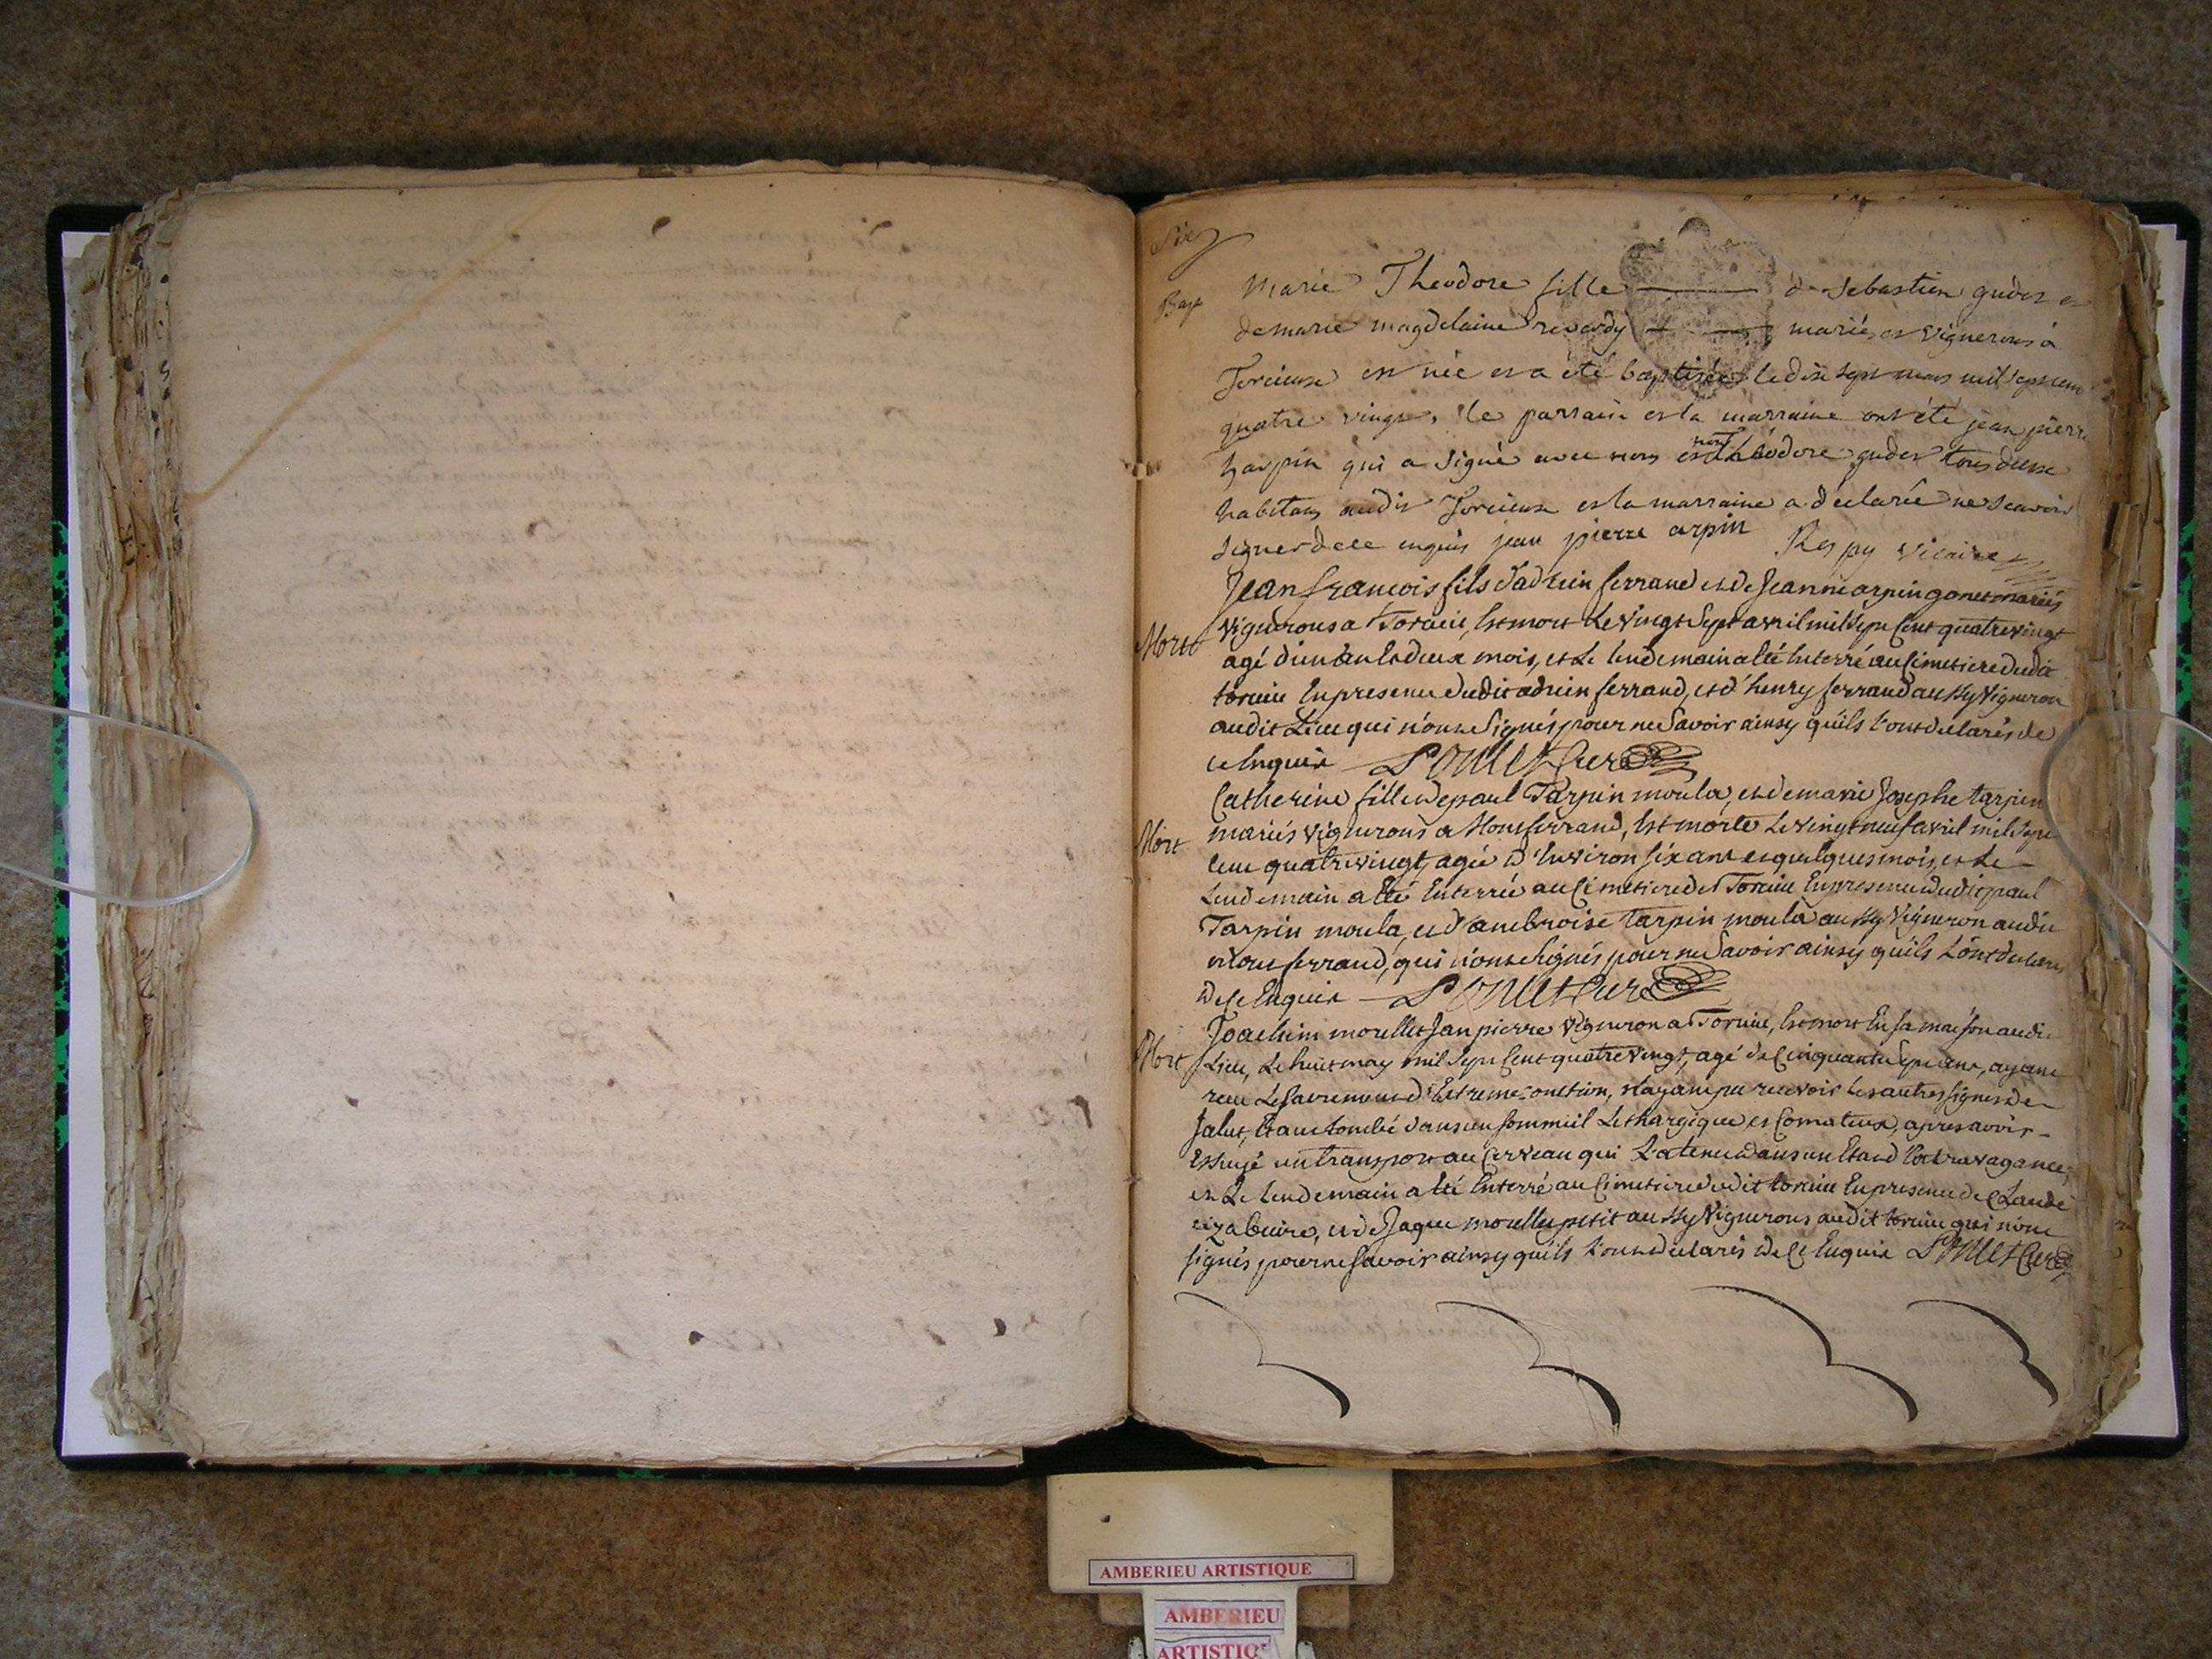 Six
Bap
Marie Theodore fille de Sebastien gudet et
de marie magdelaine reverdy mariés et vignerons à
Torcieux est née et a été baptisée le dix sept mars mil sept cent
quatre vingt, le parrain et la marraine ont été jean pierre
harpin qui a signé avec nous et theodore gudet tous deux
habitans audit Torcieux et la marraine a déclarée ne scavoir
signer de ce enquis jean pierre arpin Rey py vicaire
Mort
Jean francois fils d'adrien ferrand et de Jeanne arpin gonet mariés
vignerons a Torcieu, Est mort Le vingt sept avril mil sept Cent quatrevingt
agé d'un an Et deux mois, et Le lendemain a Eté Enterré au Cimetiere dudit
torcieu En presence dudit adrien ferrand, et d'henry ferrand aussy vigneron
audit Lieu qui n'ont Signés pour ne Savoir ainsy qu'ils L'ont declarés de
ce Enquis Poncet Curé
Mort
Catherine fille de paul Tarpin moula, et de marie Josephe tarpin
mariés vignerons a Montferrand, Est morte Le vingt neuf avril mil sept
cent quatrevingt, agée d'Environ six ans et quelques mois, et Le
Lendemain a Eté Enterrée au Cimetiere de Torcieu En presence dudit paul
Tarpin moula, et d'ambroise tarpin moula aussy vigneron audit
montferrand, qui n'ont Signés pour ne Savoir ainsy qu'ils L'ont declarés
de ce Enquis Poncet Curé
Mort
Joachim morellet Jan pierre vigneron a Torcieu, Est mort En sa maison audit
Lieu, Le huit may mil sept Cent quatre vingt, agé de Cinquante sept ans, ayant
recu Le sacrement d'Extreme-onction, n'ayant pu recevoir Les autres signes de
salut, Etant tombé dans un sommeil Lethargique et Comateux, apres avoir
Essuyé un transport au Cerveau qui L'a tenu dans un Etat d'Extravagance,
et Le lendemain a Eté Enterré au Cimetiere dudit torcieu En presence de Claude
, et de Jaque morellet petit aussy vignerons audit torcieu qui n'ont
signés pour ne savoir ainsy qu'ils L'ont declarés de Ce Enquis Poncet Curé
AMBERIEU ARTISTIQUE
AMBERIEU
ARTISTIQ